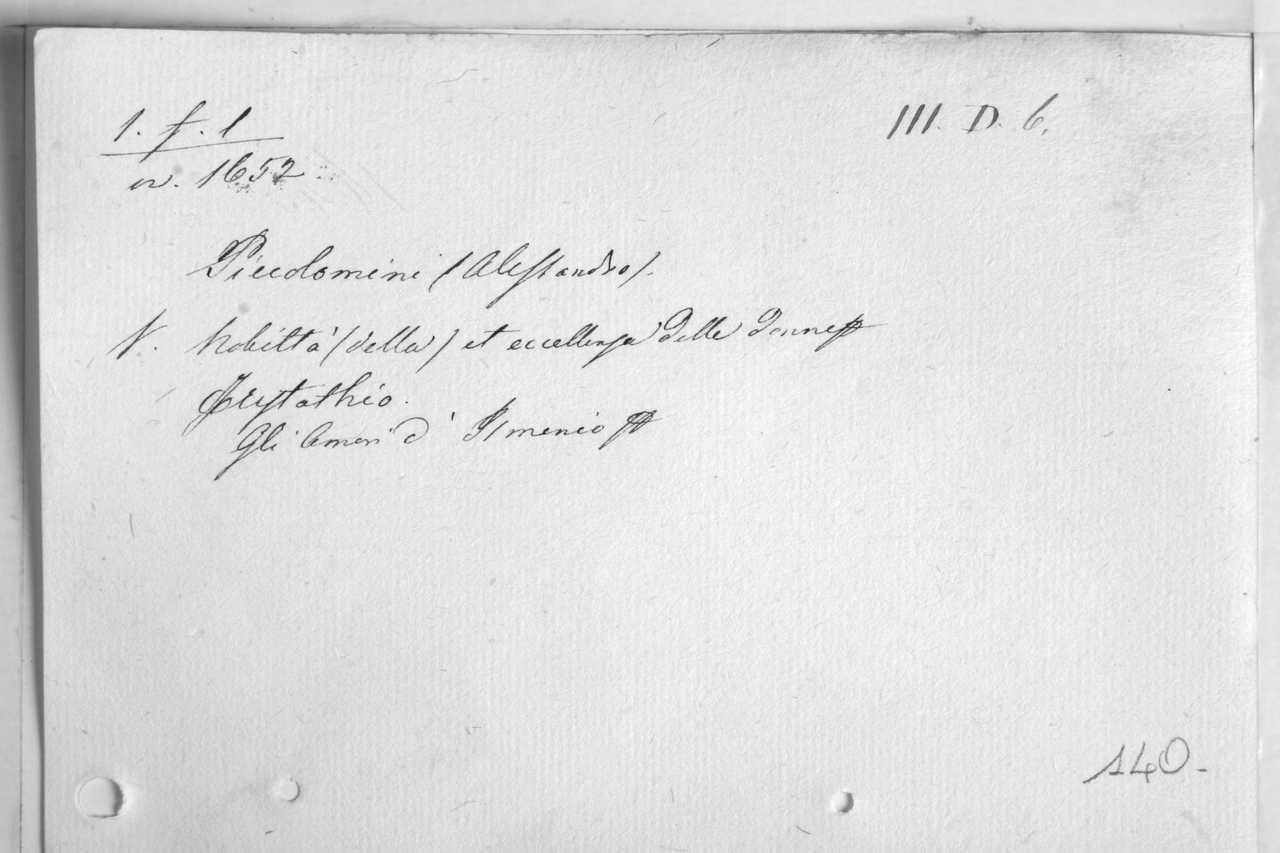 1. f. 1
III. D. 6.
w. 1652
Piccolomini (Alessandro).
N. Nobiltà (della) et eccellenza delle Donne
Eustathio.
Gli Amori d' Ismenio
140.